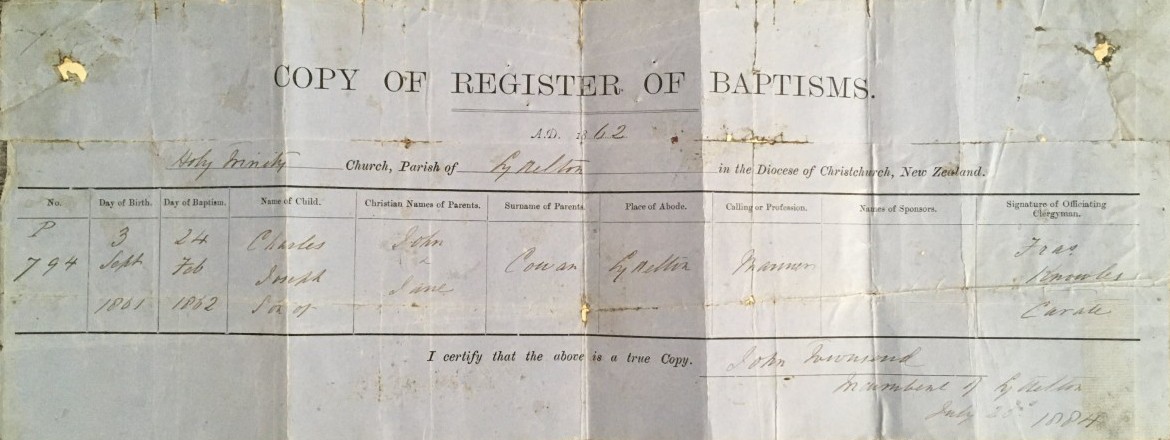 COPY OF REGISTER OF BAPTISMS.
A.D. 1862
Holy Trinity Church, Parish of Lyttelton in the Diocese of Christchurch, New Zealand.
No. Day of Birth. Day of Baptism. Name of Child. Christian Names of Parents. Surname of Parents. Place of Abode. Calling or Profession. Names of Sponsors. Signature of Officiating Clergyman.
P 3 24 Charles John Fras
794 Sept Feb Joseph & Jane Cowan Lyttelton Mariner Knowles
1861 1862 Son of Curate
I certify that the above is a true Copy. John Townsend
Incumbent of Lyttelton
July 1884